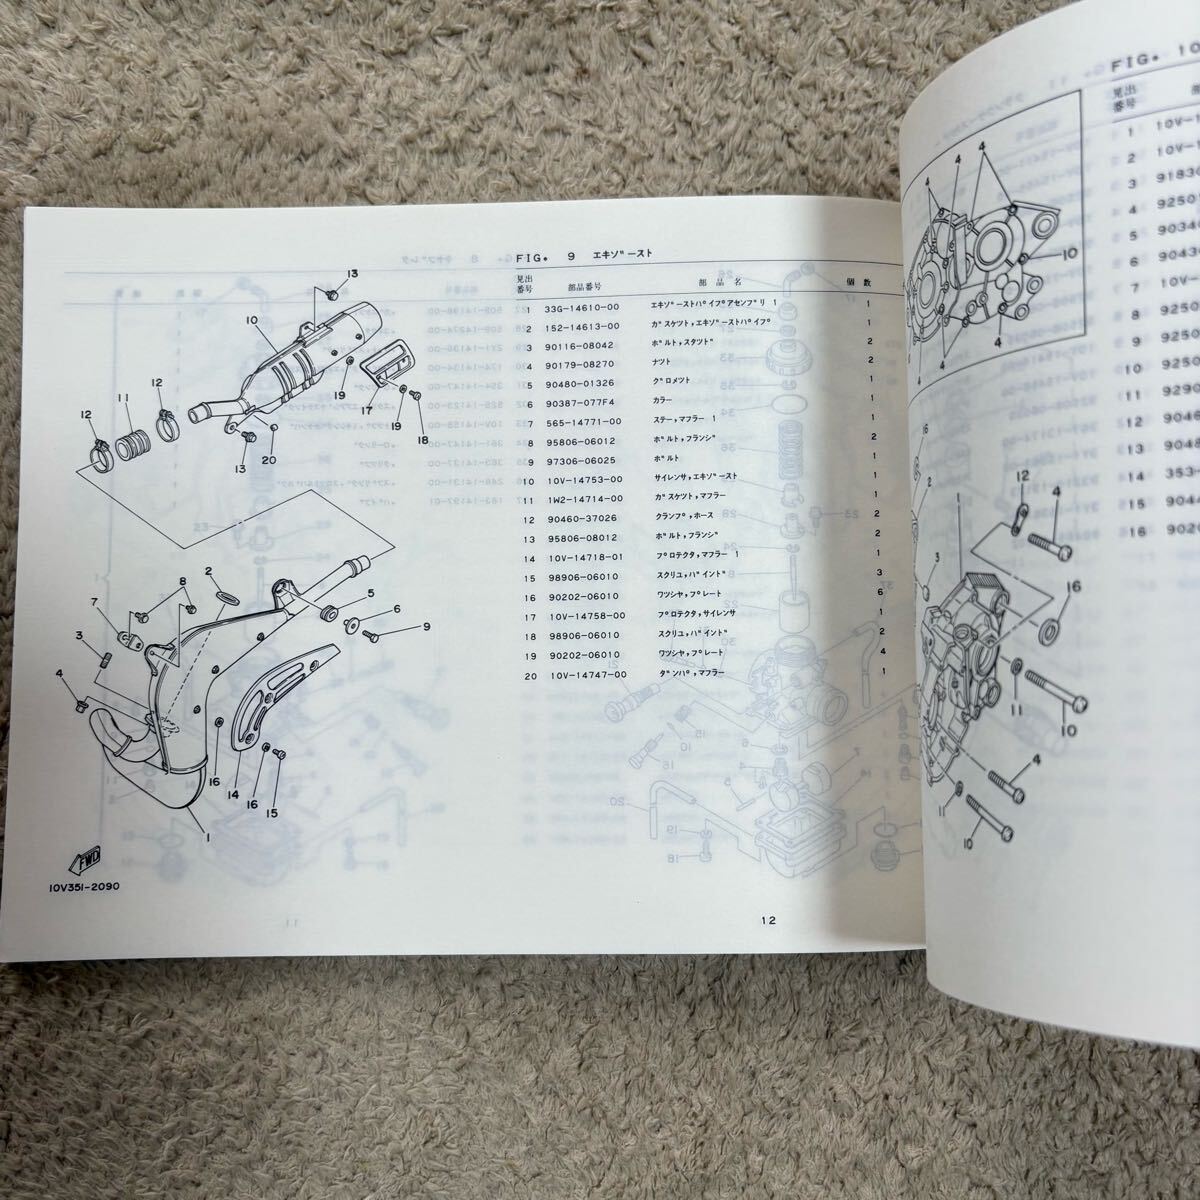 FIG. 9 エキゾースト
見出番号 部品番号 部品名 個数
1 33G-14610-00 エキゾーストパイプアセンブリ 1 1
2 152-14613-00 ガスケツト,エキゾーストパイプ 1
3 90116-08042 ボルト,スタツド 2
4 90179-08270 ナツト 2
5 90480-01326 グロメツト 1
6 90387-077F4 カラー 1
7 565-14771-00 ステー,マフラー 1 1
8 95806-06012 ボルト,フランジ 2
9 97306-06025 ボルト 1
10 10V-14753-00 サイレンサ,エキゾースト 1
11 1W2-14714-00 ガスケツト,マフラー 1
12 90460-37026 クランプ,ホース 2
13 95806-08012 ボルト,フランジ 2
14 10V-14718-01 プロテクタ,マフラー 1 1
15 98906-06010 スクリユ,バインド 3
16 90202-06010 ワツシヤ,プレート 6
17 10V-14758-00 プロテクタ,サイレンサ 1
18 98906-06010 スクリユ,バインド 2
19 90202-06010 ワツシヤ,プレート 4
20 10V-14747-00 ダンパ,マフラー 1
13
10
12
11
12
19
17
19
18
13
20
2
8
7
5
6
9
3
4
16
14
16
15
1
FWD
10V351-2090
12
FIG. 10
見出番号
1 10V-1
2 10V-1
3 91830
4 9250
5 9034
6 9043
7 10V-
8 9250
9 9250
10 9250
11 9290
12 9046
13 9046
14 353
15 904
16 902
4
4
4
4
10
4
4
4
12
4
16
11
10
4
11
10